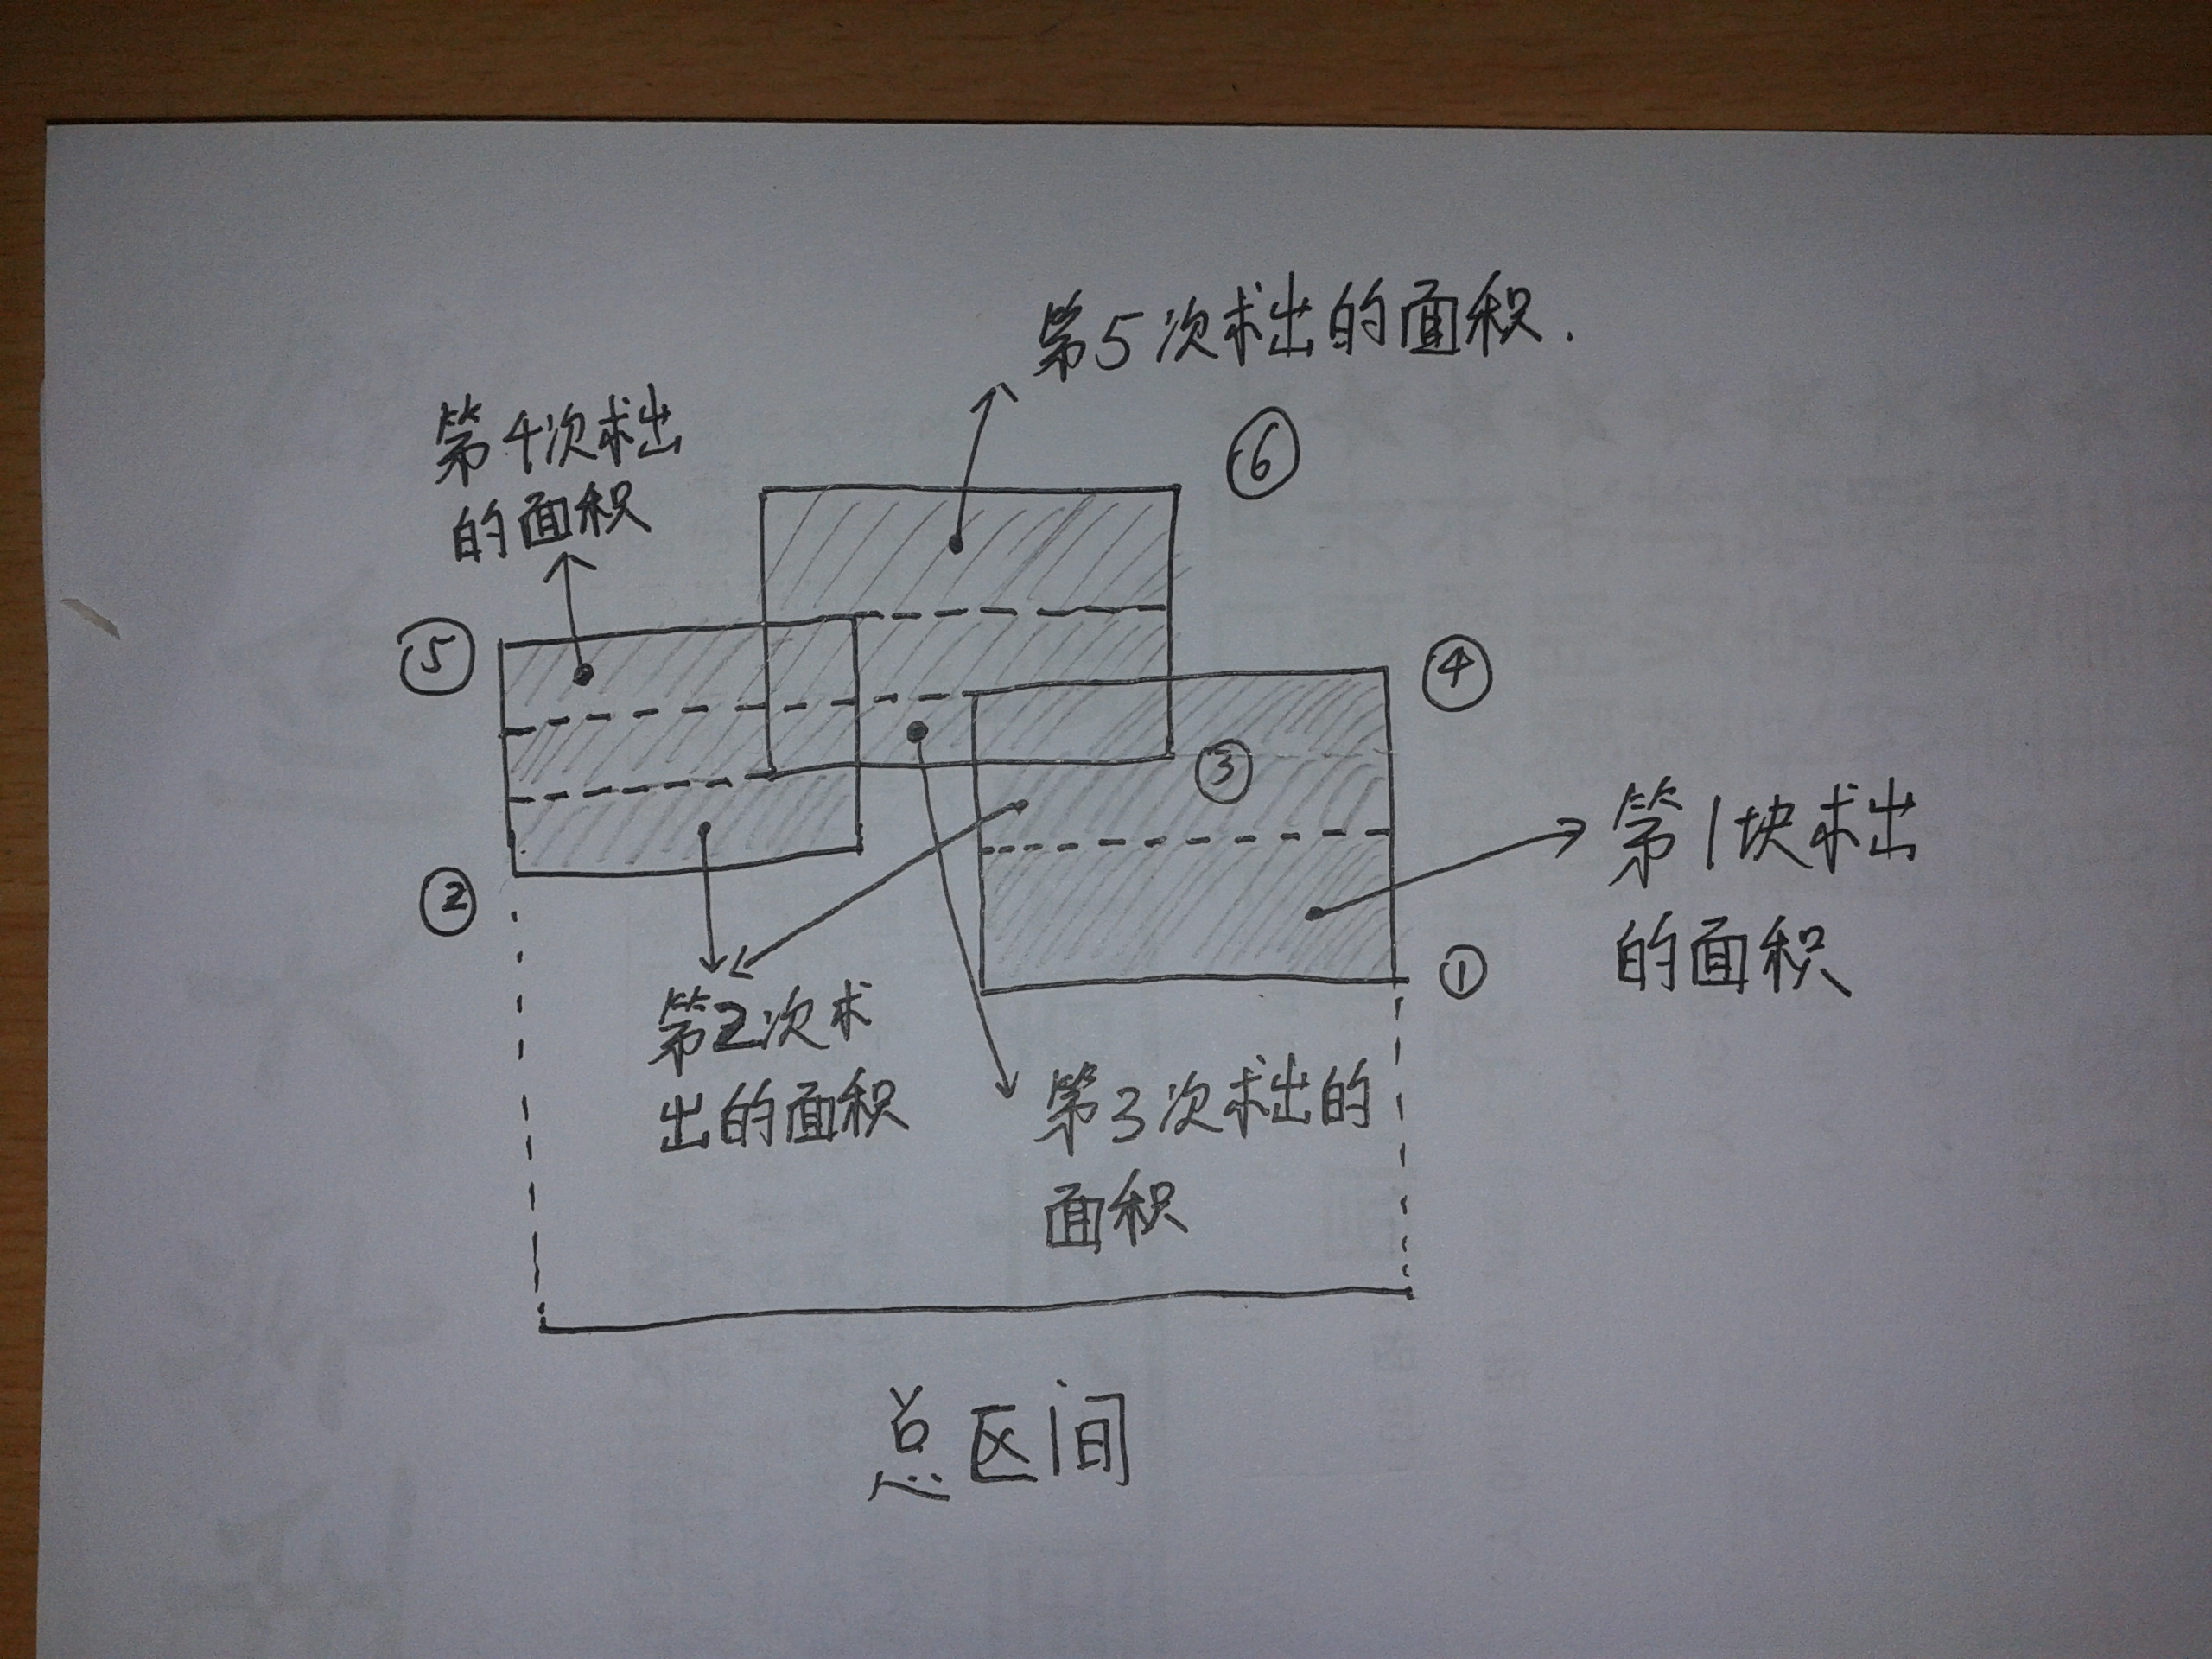 第5次求出的面积.
第4次求出
的面积
⑥
⑤
④
③
第1块求出
的面积
②
①
第2次求
出的面积
第3次求出的
面积
总区间